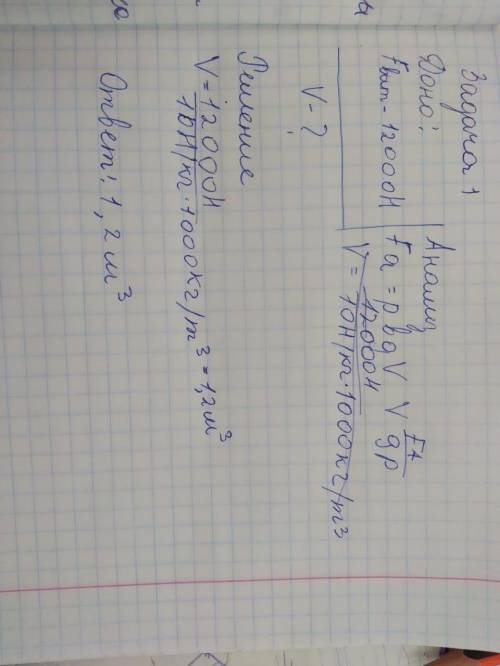 Задача 1
Дано:
Fвыт - 12000Н
V - ?
Анализ
Fa = ρв g V V Fa/gρ
V = 12000Н / 10Н/кг · 1000кг/m3
Решение
V = 12000Н / 10Н/кг · 1000кг/m3 = 1,2м3
Ответ: 1,2м3